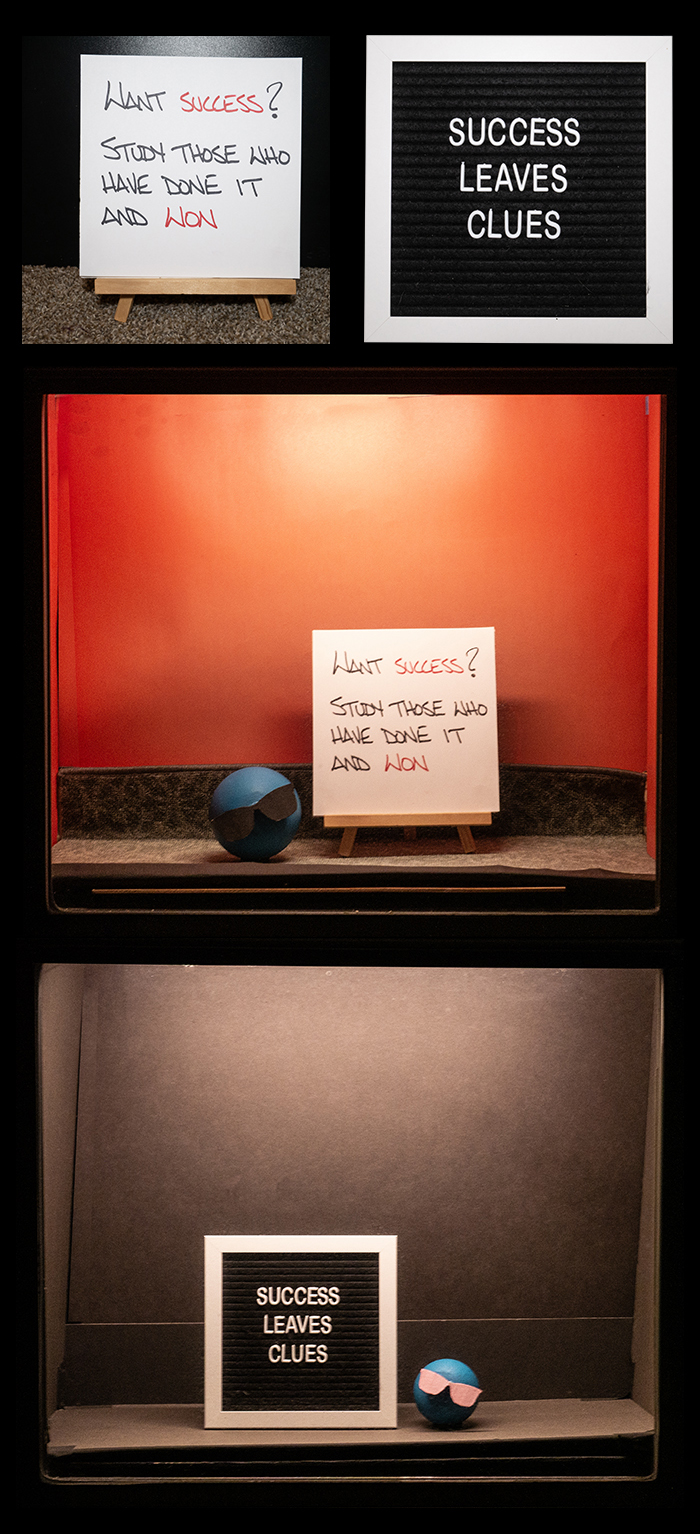 WANT SUCCESS?
STUDY THOSE WHO
HAVE DONE IT
AND WON
SUCCESS
LEAVES
CLUES
WANT SUCCESS?
STUDY THOSE WHO
HAVE DONE IT
AND WON
SUCCESS
LEAVES
CLUES